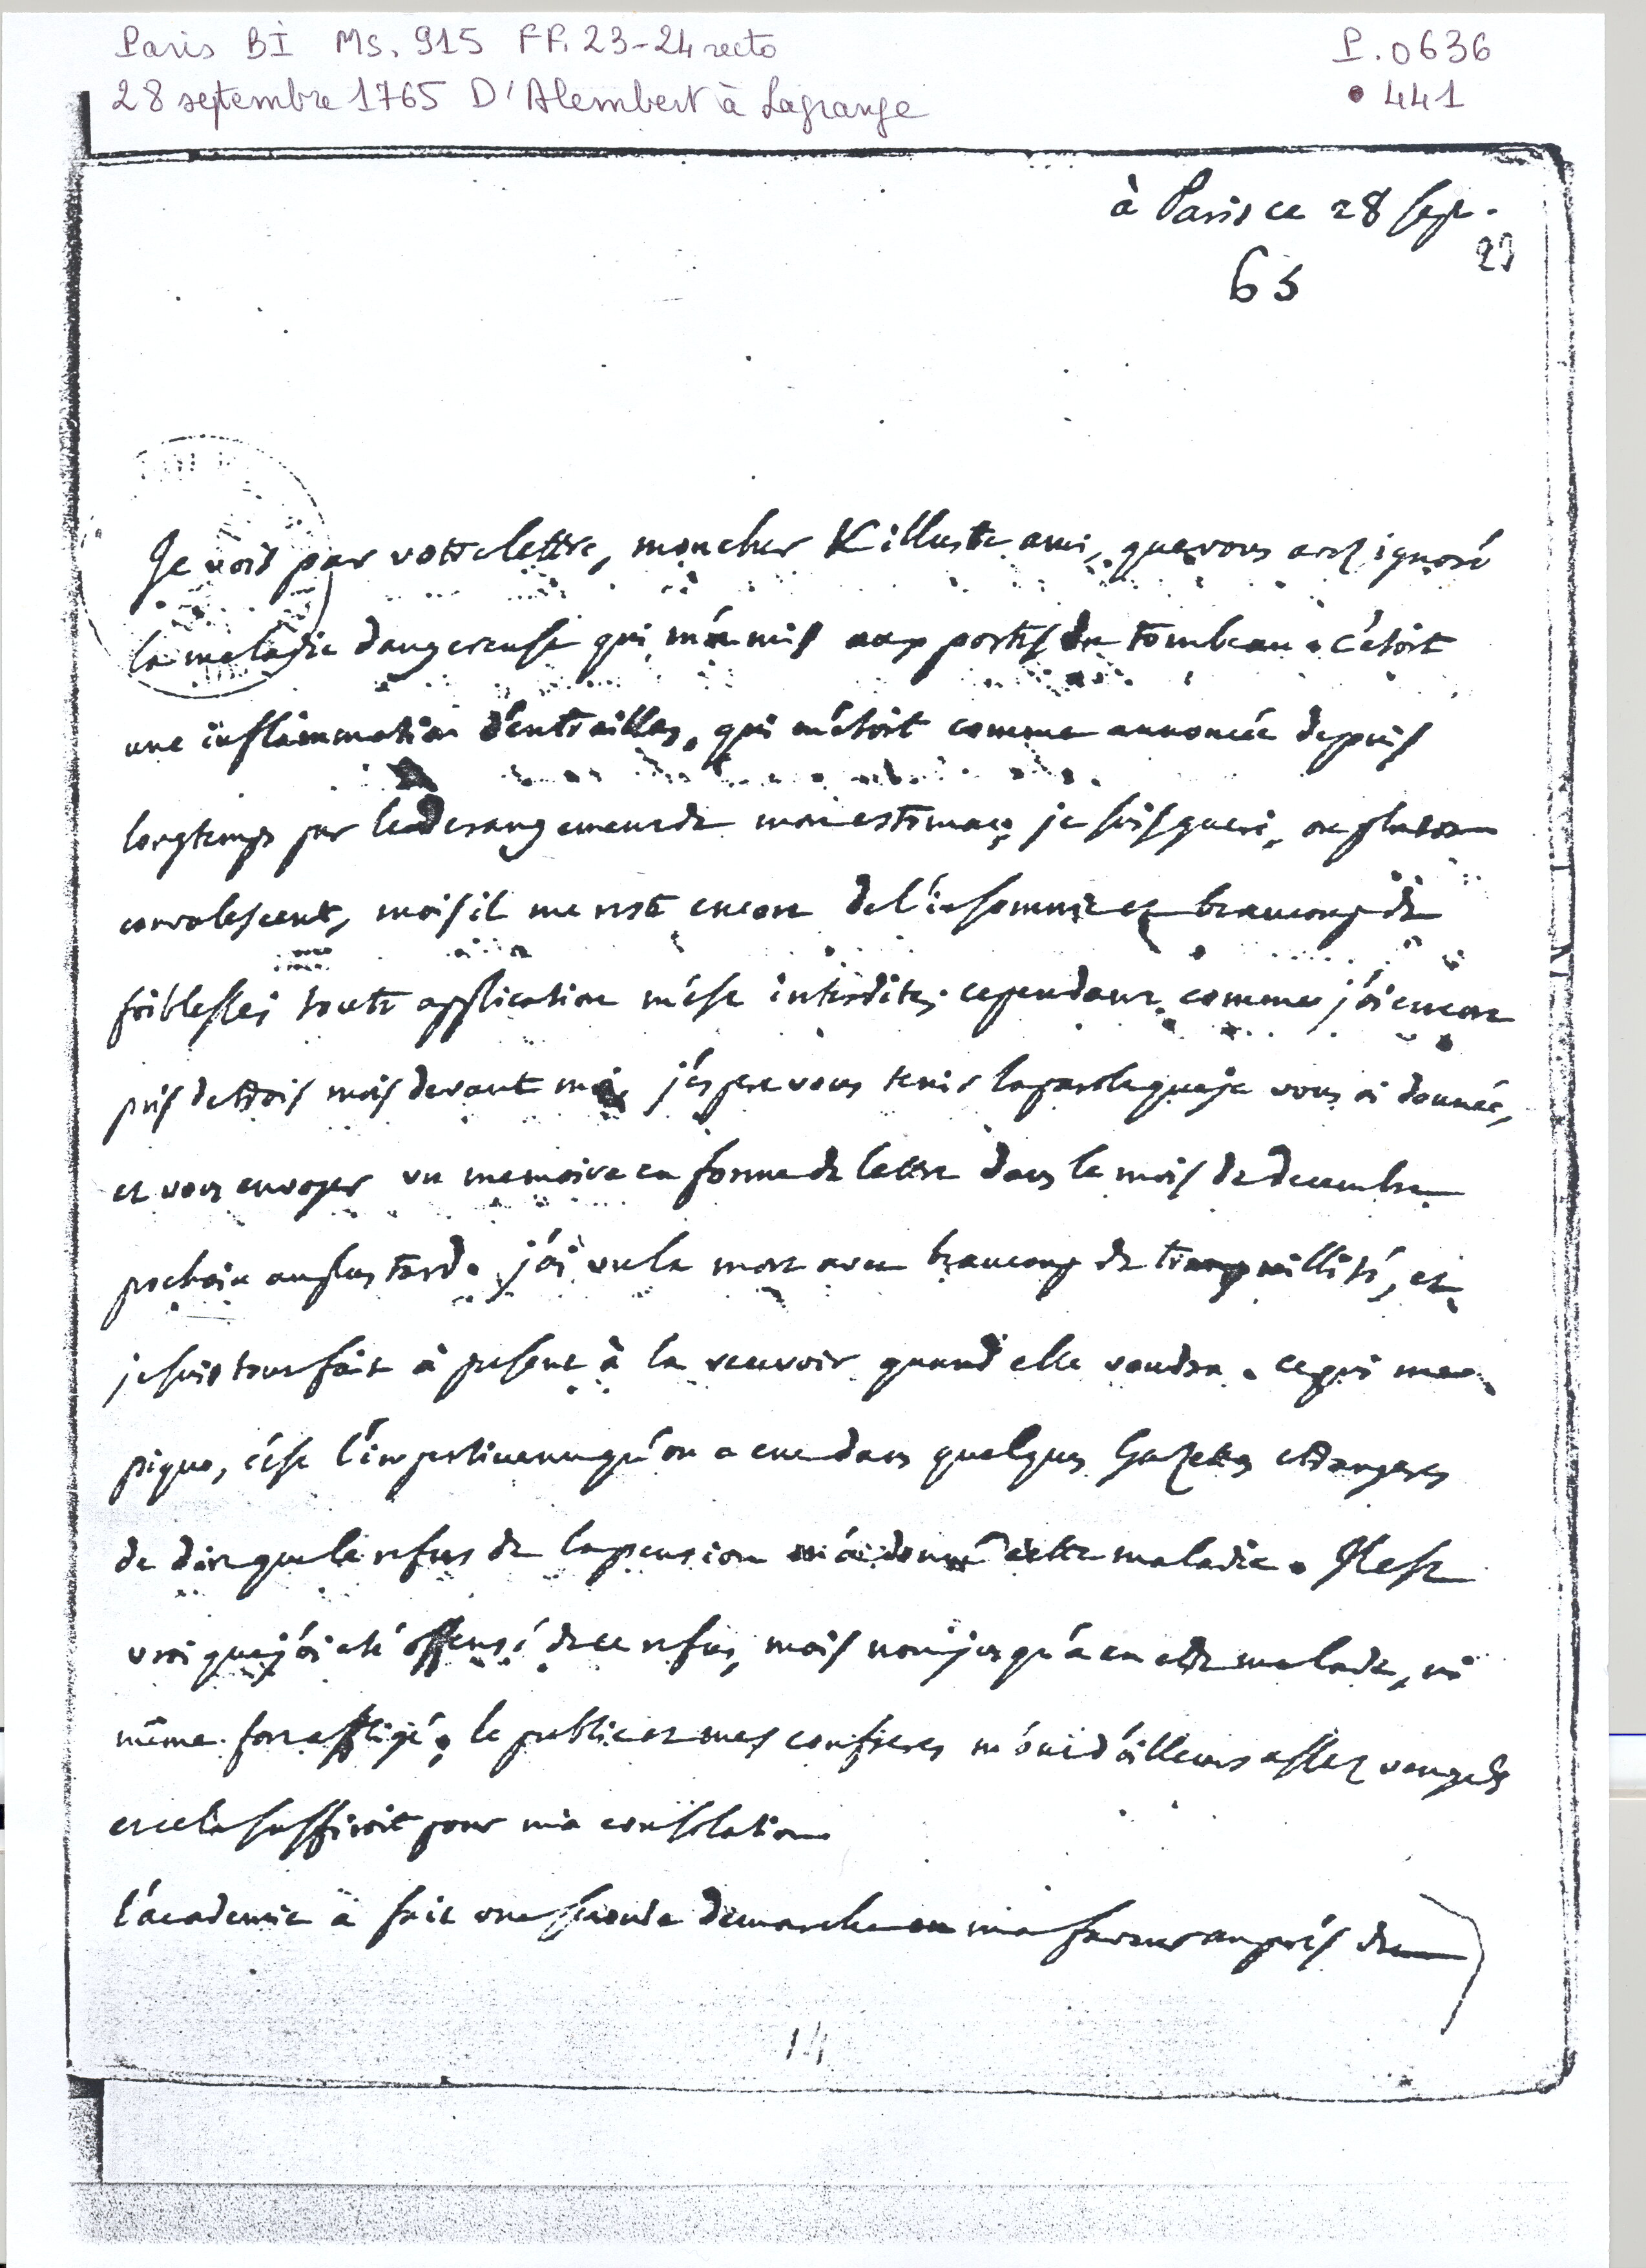 Paris BI Ms. 915 FF. 23-24 recto
P. 0636
28 septembre 1765 D'Alembert à Lagrange
• 441
à Paris ce 28 sept.
23
65
Je vois par votre lettre, mon cher & illustre ami, que vous avez ignoré
la maladie dangereuse qui m'a mis aux portes du tombeau. c'etoit
une inflammation d'entrailles, qui m'étoit comme annoncée depuis
longtemps par le derangement de mon estomac; je suis gueri, ou plutot
convalescent, mais il me reste encore de l'insomnie et beaucoup de
foiblesse; toute application m'est interdite; cependant comme j'ai encore
près de trois mois devant moi, j'espere vous tenir la parole que je vous ai donnée,
et vous envoyer un memoire en forme de lettre dans le mois de decembre
prochain au plus tard. j'ai vu la mort avec beaucoup de tranquillité, et
je suis tout fait à present à la recevoir quand elle voudra. ce qui me
pique, c'est l'impertinence qu'on a eue dans quelques Gazettes etrangeres
de dire que le refus de la pension m'a donné cette maladie. Il est
vrai que j'ai eté offensé de ce refus, mais non jusqu'à en etre malade, ni
même fort affligé; le public et mes confreres m'ont d'ailleurs assez vengé
et cela suffiroit pour ma consolation
l'academie a fait une seconde demarche en ma faveur auprès du
14